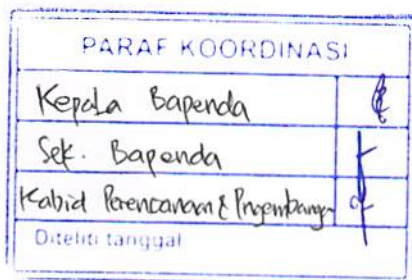 PARAF KOORDINASI
Kepala Bapenda
Sek. Bapenda
Kabid Perencanaan & Pngembangn
Diteliti tanggal